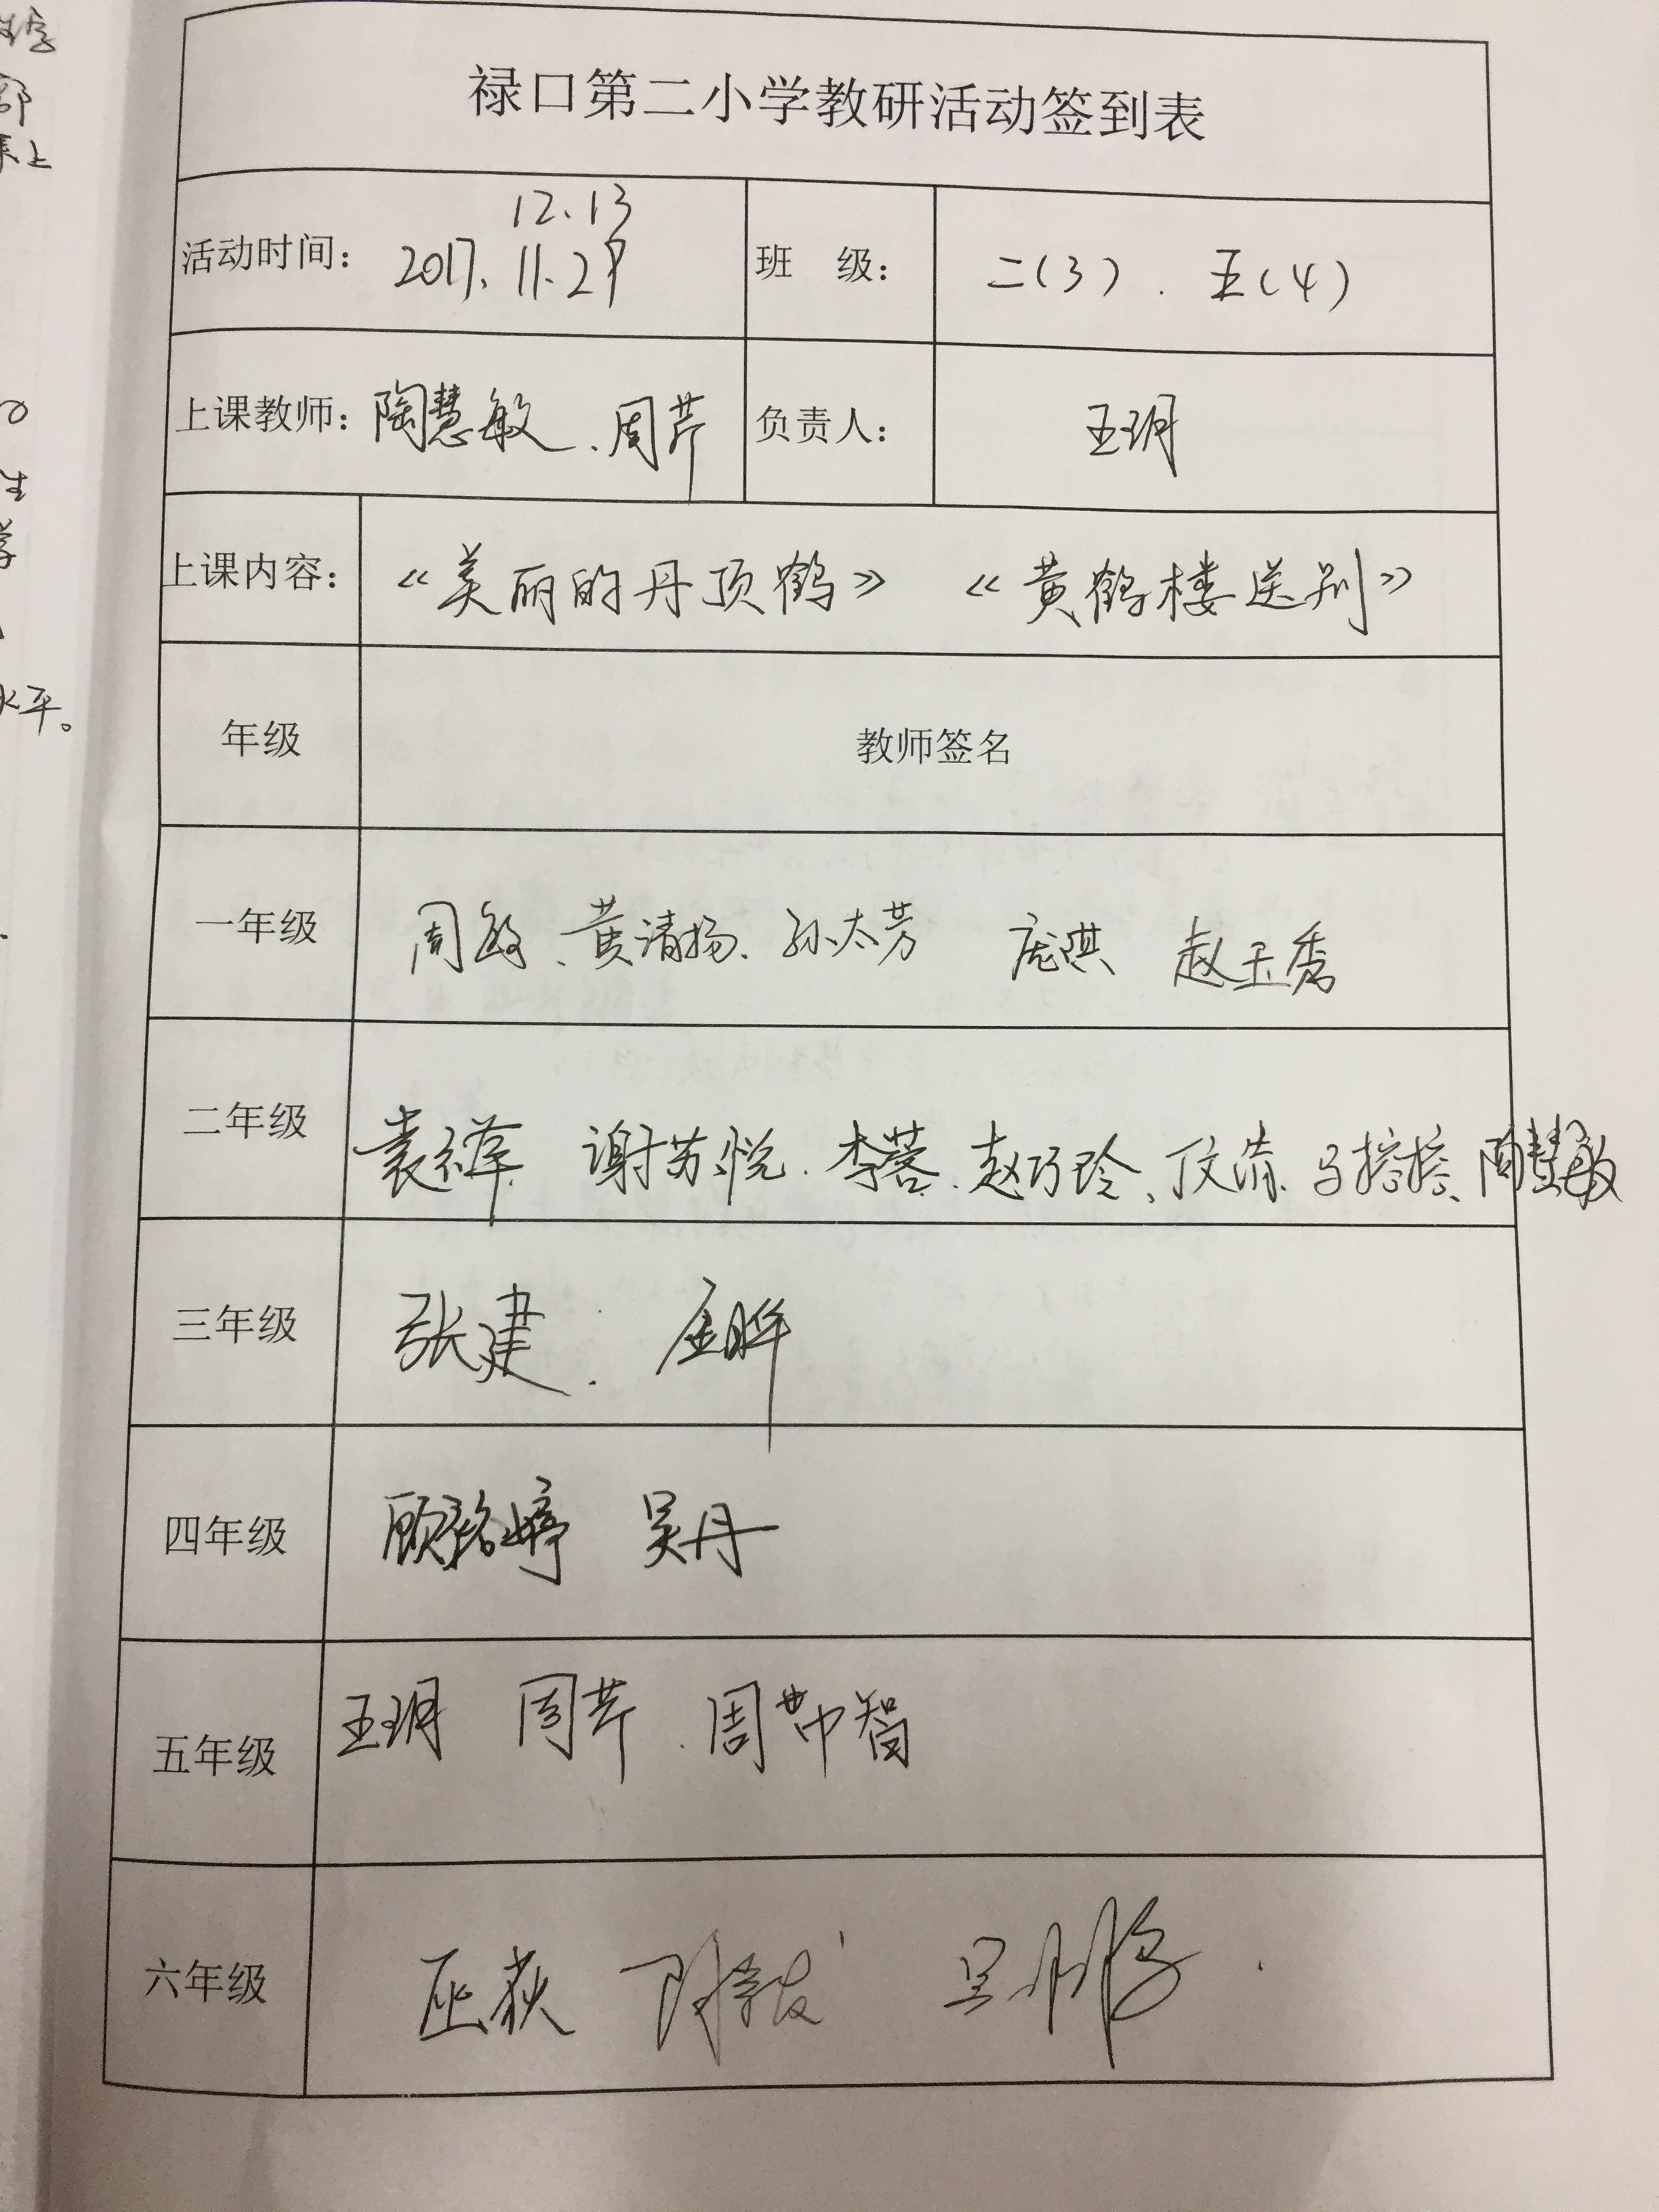 禄口第二小学教研活动签到表
12.13
活动时间: 2017. 11.29 班 级: 二(3) . 五(4)
上课教师: 陶慧敏、周芹 负责人: 王玥
上课内容: 《美丽的丹顶鹤》 《黄鹤楼送别》
年级 教师签名
一年级 周敏、黄清扬、孙太芳 庞淇 赵玉秀
二年级 谢芳悦. 李蓉. 赵巧玲、 陶慧敏
三年级 张建.
四年级 吴丹
五年级 王玥 周芹. 周芾智
六年级
水平。